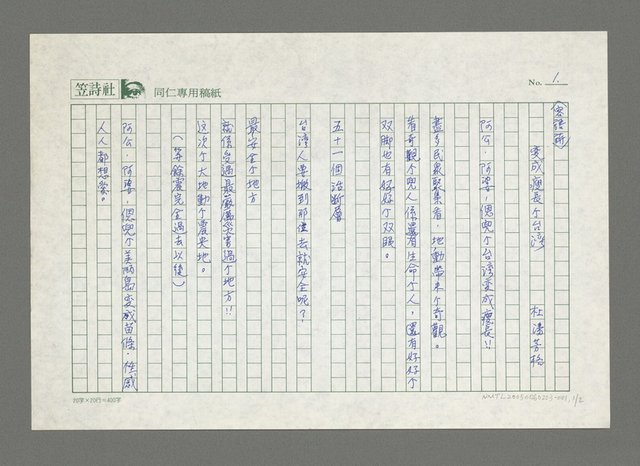 笠詩社
同仁專用稿紙
No. 1.
(客語詩)
變成瘦長个台灣
杜潘芳格
阿公、阿婆,𠊎兜个台灣變成瘦長!!
盡多民眾聚集看,地動帶來个奇觀。
看奇觀个兜人係還有生命个人,還有好好个
双脚也有好好个双眼。
五十一個活斷層
台灣人要搬到那位去就安全呢?
最安全个地方
就係受過最嚴厲災害過个地方!!
這次个大地動个震央地。
(等餘震完全過去以後)
阿公、阿婆,𠊎兜个美麗島變成苗條、性感
人人都想愛。
20字×20行=400字
1/2